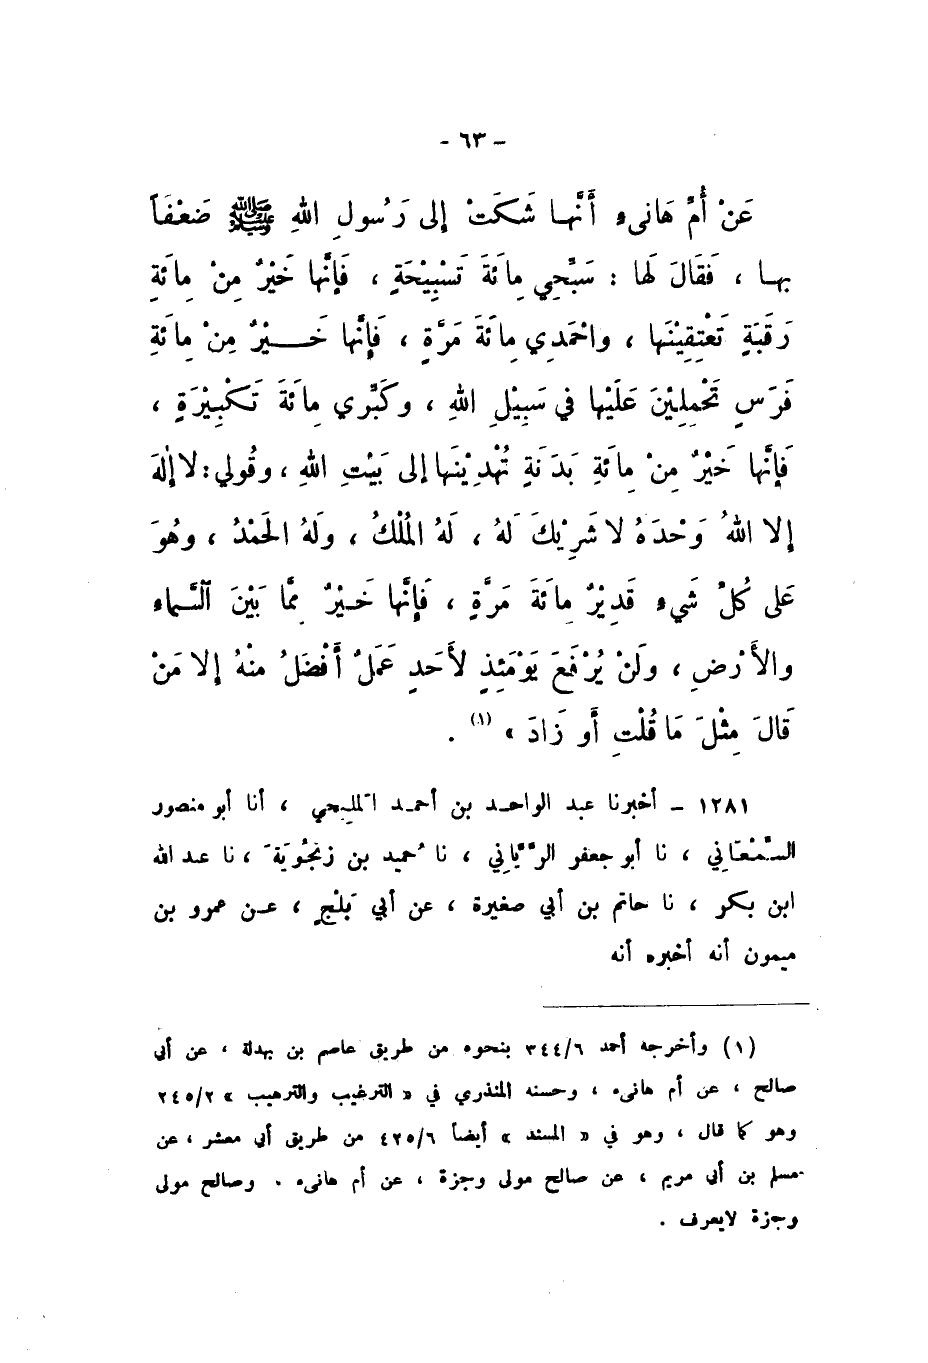 - ٦٣ -
عَنْ أُمِّ هَانىء أَنَّهـا شَكَتْ إلى رَسُولِ اللهِ ﷺ ضَعْفَاً
بهـا ، فَقَالَ لَها : سَبِّحِي مِائَةَ تَسْبِيْحَةٍ ، فَإنَّها خَيْرٌ مِنْ مِائَةِ
رَقَبَةٍ تَعْتِقِيْنَها ، واحْمَدِي مِائَةَ مَرَّةٍ ، فَإنَّها خَـــيْرٌ مِنْ مِائَةِ
فَرَسٍ تَحْمِلِيْنَ عَلَيْها في سَبِيْلِ اللهِ ، وكَبِّري مِائَةَ تَكْبِيْرَةٍ ،
فَإنَّها خَيْرٌ مِنْ مِائَةِ بَدَنَةٍ تُهْدِيْنَها إلى بَيْتِ اللهِ ، وقُولي : لا إلٰهَ
إلا اللهُ وَحْدَهُ لا شَرِيْكَ لَهُ ، لَهُ المُلْكُ ، ولَهُ الحَمْدُ ، وهُوَ
عَلى كُلِّ شَيء قَدِيْرٌ مِائَةَ مَرَّةٍ ، فَإنَّها خَـيْرٌ مِمَّا بَيْنَ السَّماء
والأَرْضِ ، ولَنْ يُرْفَعَ يَوْمَئِذٍ لأَحَدٍ عَمَلٌ أَفْضَلُ مِنْهُ إلا مَنْ
قَالَ مِثْلَ مَا قُلْتِ أَو زَادَ » (١) .
١٢٨١ – أخبرنا عبد الواحـد بن أحمـد المَليـحي ، أنا أبو منصور
السَّمْعَاني ، نا أبو جعفر الرَّيَّاني ، نا حُميد بن زنجُويَة ، نا عبد الله
ابن بكر ، نا حاتم بن أبي صغيرة ، عن أبي بَلْجٍ ، عـن عمرو بن
ميمون أنه أخبره أنه
(١) وأخرجه أحمد ٣٤٤/٦ بنحوه من طريق عاصم بن بهدلة ، عن أبي
صالح ، عن أم هانىء ، وحسنه المنذري في « الترغيب والترهيب » ٢٤٥/٢
وهو كما قال ، وهو في « المسند » أيضاً ٤٢٥/٦ من طريق أبي معشر ، عن
مسلم بن أبي مريم ، عن صالح مولى وجزة ، عن أم هانىء . وصالح مولى
وجزة لايعرف .